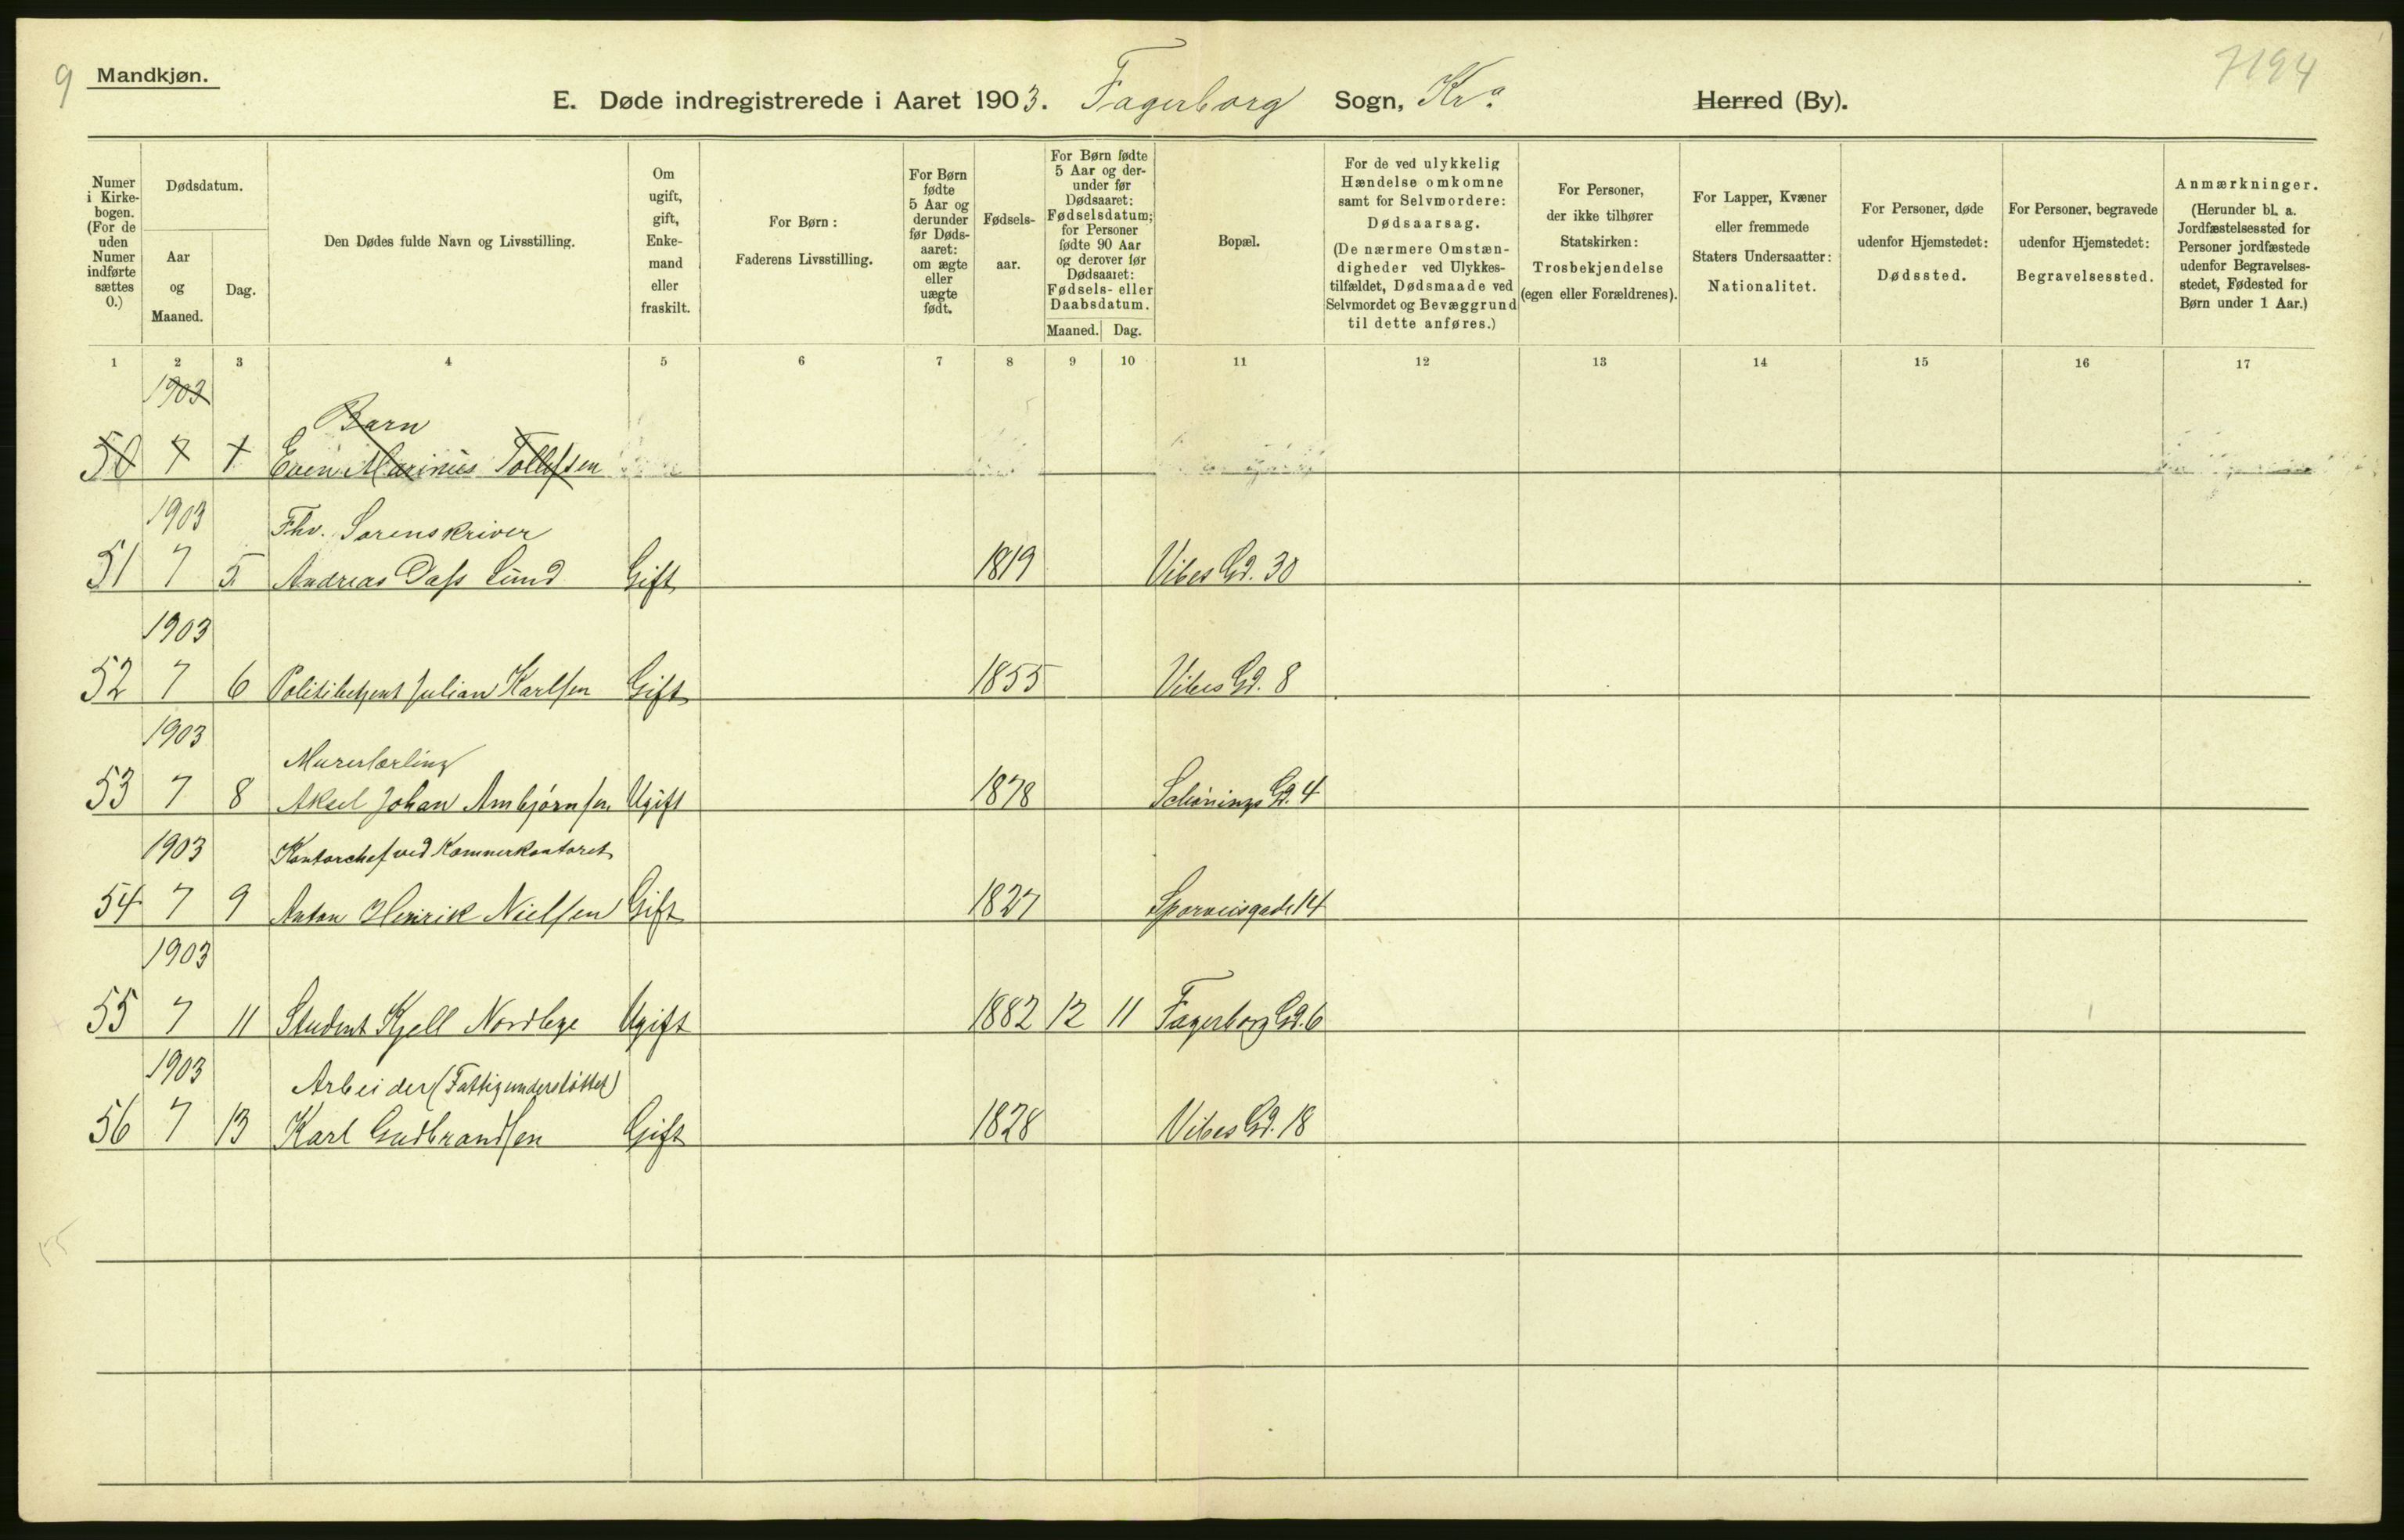 9 Mandkjøn.
7194
E. Døde indregistrerede i Aaret 1903. Fagerborg Sogn, Kra Herred (By).
Numer i Kirkebogen. (For de uden Numer indførte sættes 0.)
Dødsdatum.
Aar og Maaned.
Dag.
Den Dødes fulde Navn og Livsstilling.
Om ugift, gift, Enkemand eller fraskilt.
For Børn: Faderens Livsstilling.
For Børn fødte 5 Aar og derunder før Dødsaaret: om ægte eller uægte født.
Fødselsaar.
For Børn fødte 5 Aar og derunder før Dødsaaret: Fødselsdatum; for Personer fødte 90 Aar og derover før Dødsaaret: Fødsels- eller Daabsdatum.
Maaned. Dag.
Bopæl.
For de ved ulykkelig Hændelse omkomne samt for Selvmordere: Dødsaarsag. (De nærmere Omstændigheder ved Ulykkestilfældet, Dødsmaade ved Selvmordet og Bevæggrund til dette anføres.)
For Personer, der ikke tilhører Statskirken: Trosbekjendelse (egen eller Forældrenes).
For Lapper, Kvæner eller fremmede Staters Undersaatter: Nationalitet.
For Personer, døde udenfor Hjemstedet: Dødssted.
For Personer, begravede udenfor Hjemstedet: Begravelsessted.
Anmærkninger. (Herunder bl. a. Jordfæstelsessted for Personer jordfæstede udenfor Begravelsesstedet, Fødested for Børn under 1 Aar.)
1 2 3 4 5 6 7 8 9 10 11 12 13 14 15 16 17
1903
Barn
50 7 1 Even Marinius Tollefsen
1903 Fhv. Sorenskriver
51 7 5 Andreas Dass Lund Gift 1819 Vibes Gd. 30
1903
52 7 6 Politibetjent Julian Karlsen Gift 1855 Vibes Gd. 8
1903 Murerlærling
53 7 8 Aksel Johan Ambjørnsen Ugift 1878 Schønings Gd. 4
1903 Kontorchef ved Kæmnerkontoret
54 7 9 Anton Henrik Nielsen Gift 1827 Sporveisgade 14
1903
55 7 11 Student Kjell Nordbye Ugift 1882 12 11 Fagerborg Gd. 6
1903 Arbeider (Fattigunderstøttet)
56 7 13 Karl Gudbrandsen Gift 1828 Vibes Gd. 18